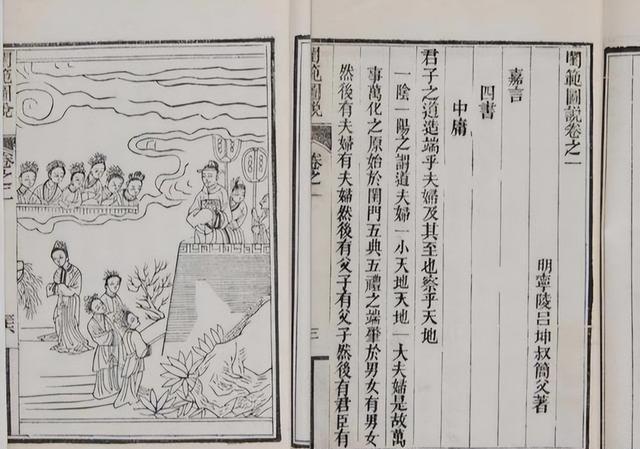 閨範圖說卷之一
明寧陵呂坤叔簡父著
嘉言
四書
中庸
君子之道造端乎夫婦及其至也察乎天地
一陰一陽之謂道夫婦一小天地天地一大夫婦是故萬
事萬化之原始於閨門五典五禮之端肇於男女有男女
然後有夫婦有夫婦然後有父子有父子然後有君臣有
閨範圖說
卷之一
閨範圖說
卷之